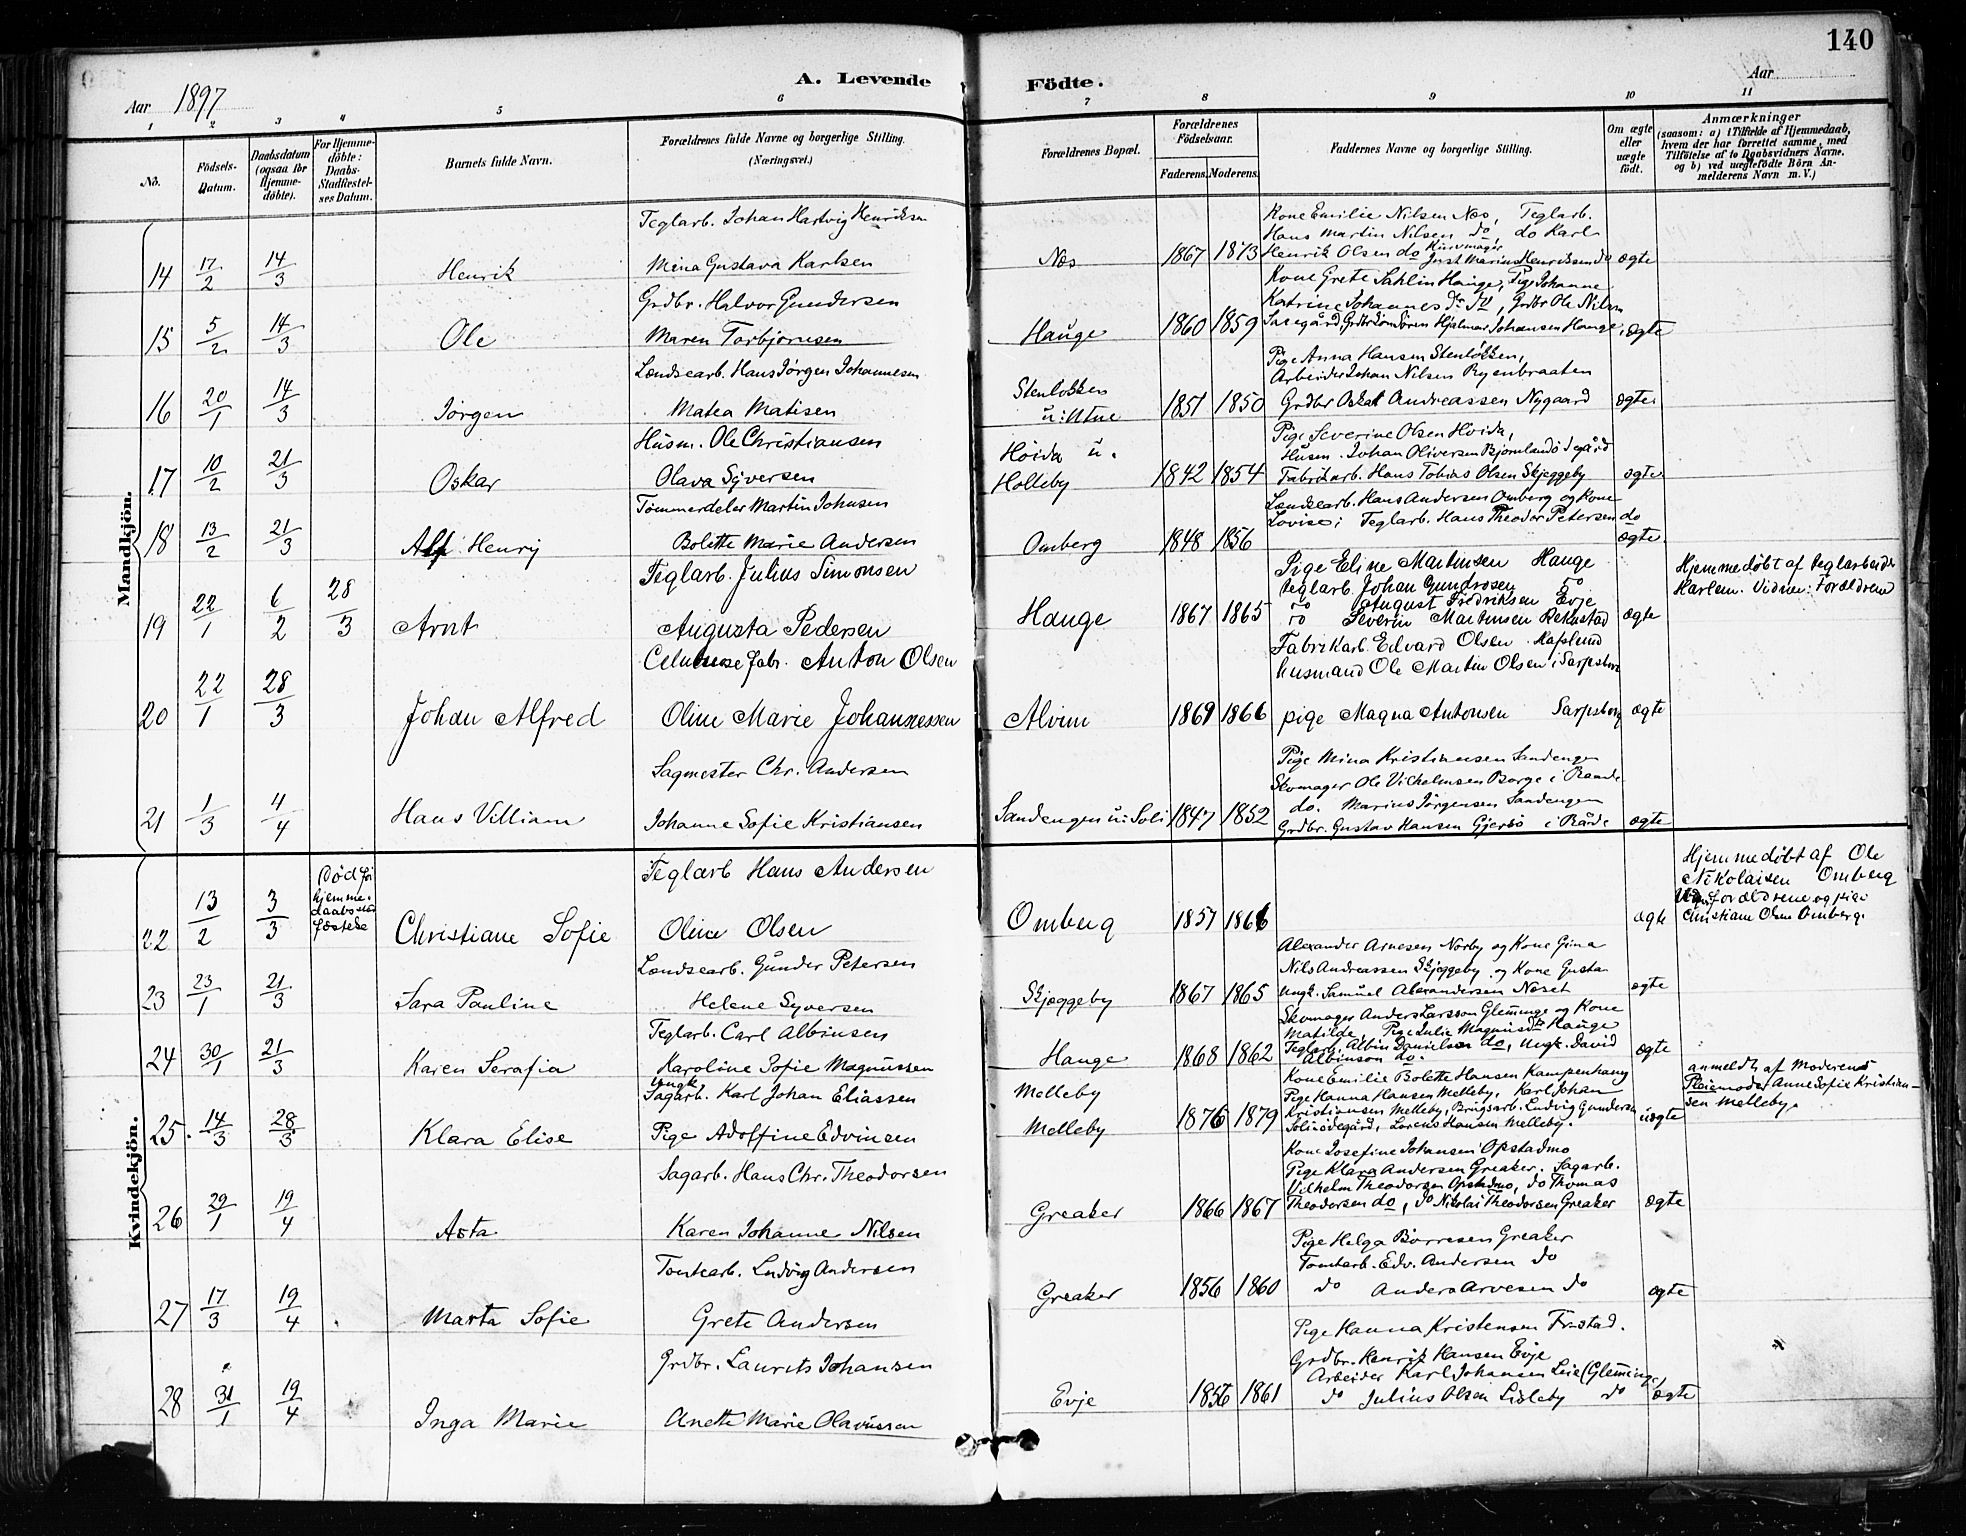 140
A. Levende Födte.
Aar 1897
Aar
1 2 3 4 5 6 7 8 9 10 11
No.
Födsels-Datum.
Daabsdatum (ogsaa for Hjemmedöbte).
For Hjemmedöbte: Daabs-Stadfæstelses Datum.
Barnets fulde Navn.
Forældrenes fulde Navne og borgerlige Stilling. (Næringsvei.)
Forældrenes Bopæl.
Forældrenes Födselsaar.
Faderens. Moderens.
Faddernes Navne og borgerlige Stilling.
Om ægte eller uægte födt.
Anmærkninger
(saasom: a) i Tilfælde af Hjemmedaab, hvem der har forrettet samme, med Tilföielse af to Daabsvidners Navne, og b) ved uægtefödte Börn Anmelderens Navn m. V.)
Mandkjön.
Teglarb. Johan Hartvig Henriksen
Kone Emilie Nilsen Næs, Teglarb.
Hans Martin Nilsen do, do Karl
14 17/2 14/3 Henrik Mina Gustava Karlsen Næs 1867 1873 Henrik Olsen do Just Marius Henriksen do ægte
Kone Grete Sahlin Hauge, Pige Johanne
Grdbr. Halvor Gundersen Katrine Johannesdr do, Grdbr Ole Nilsen
15 5/2 14/3 Ole Maren Torbjørnsen Hauge 1860 1859 Hjalmar Johansen Hauge, ægte
Lændsearb. Hans Jørgen Johannesen
Pige Anna Hansen Stenløkken,
Arbeider Johan Nilsen Ryenbraaten
16 20/1 14/3 Jørgen Matea Matisen Stenløkken u: Utne 1851 1850 Grdbr Oskar Andreassen Nygaard ægte
Husm. Ole Christiansen
Pige Severine Olsen Høida,
Husm. Johan Oliversen Bjørnlandsødegård
17 10/2 21/3 Oskar Olava Syversen Høida u. Holleby 1842 1854 Fabrikarb. Hans Tobias Olsen Skjeggeby ægte
Tømmerdeler Martin Johnsen
Lændsearb. Hans Andersen Omberg og Kone
Lovise; Teglarb. Hans Theodor Petersen do
18 13/2 21/3 Alf Henry Bolette Marie Andersen Omberg 1848 1856 ægte
Teglarb. Julius Simonsen
Pige Eline Martinsen Hauge
Teglarb. Johan Gundrosen do
do August Fredriksen Evje
19 22/1 6/2 28/3 Arnt Augusta Pedersen Hauge 1867 1865 do Severin Martinsen Rekustad ægte
Hjemmedøbt af Teglarbeider
Karlsen. Vidner: Forældrene
Cellulose fabr. Anton Olsen
Fabrikarb. Edvard Olsen Hafslund
husmand Ole Martin Olsen i Sarpsborg
20 22/1 28/3 Johan Alfred Oline Marie Johannessen Alvim 1869 1866 pige Magna Antonsen Sarpsborg ægte
Sagmester Chr. Andersen
Pige Mina Kristiansen Sandengen
Skomager Ole Vilhelmsen Borge i Raade
do. Marius Jørgensen Sandengen
21 1/3 4/4 Hans Villiam Johanne Sofie Kristiansen Sandengen u: Soli 1847 1852 Grdbr. Gustav Hansen Gjersø i Råde ægte
Kvindekjön.
Teglarb Hans Andersen
22 13/2 3/3 Død før hjemmedaabs stadfæstelse Christiane Sofie Oline Olsen Omberg 1857 1866 ægte
Hjemmedøbt af Ole
Nikolaisen Omberg
Vidn: forældrene og pige
Christiane Olsen Omberg.
Lændsearb. Gunder Petersen
Alexander Arnesen Nørby og Kone Gina
Nils Andreassen Skjeggeby og Kone Gusta
23 23/1 21/3 Sara Pauline Helene Syversen Skjeggeby 1867 1865 Ungk. Samuel Alexandersen Næset ægte
Teglarb. Carl Albinsen
Skomager Anders Larsson Glemminge og Kone
Matilde, Pige Julie Magnusdtr Hauge
24 30/1 21/3 Karen Serafia Karoline Sofie Magnussen Hauge 1868 1862 Teglarb. Albin Danielsen do, Ungk. David Albinson do. ægte
Ungk Sagarb. Karl Johan Eliassen Melleby
Kone Emilie Bolette Hansen Kampenhaug
Pige Hanna Hansen Melleby, Karl Johan
25. 14/3 28/3 Klara Elise Pige Adolfine Edvinsen Melleby 1876 1879 Kristiansen Melleby, Brugsarb. Ludvig Gundersen
Soliødegård, Lorens Hansen Melleby. uægte
anmeldt af Moderens
Pleiemoder Anne Sofie Kristiansen Melleby.
Sagarb. Hans Chr. Theodorsen
Kone Josefine Johansen Opstadmo
Pige Klara Andersen Greaker. Sagarb.
Vilhelm Theodorsen Opstadmo, do Thomas
26 29/1 19/4 Asta Karen Johanne Nilsen Greaker 1866 1867 Theodorsen do, do Nikolai Theodorsen Greaker ægte
Tomtearb. Ludvig Andersen
Pige Helga Børresen Greaker
Tomtarb. Edv. Andersen do
27 17/3 19/4 Marta Sofie Grete Andersen Greaker 1856 1860 do Anders Arvesen do ægte
Grdbr. Laurits Johansen
Pige Hanna Kristensen Fr.stad.
Grdbr. Henrik Hansen Evje
Arbeider Karl Johansen Leie (Glemminge)
28 31/1 19/4 Inga Marie Anette Marie Olavussen Evje 1856 1861 do Julius Olsen Lisleby do ægte